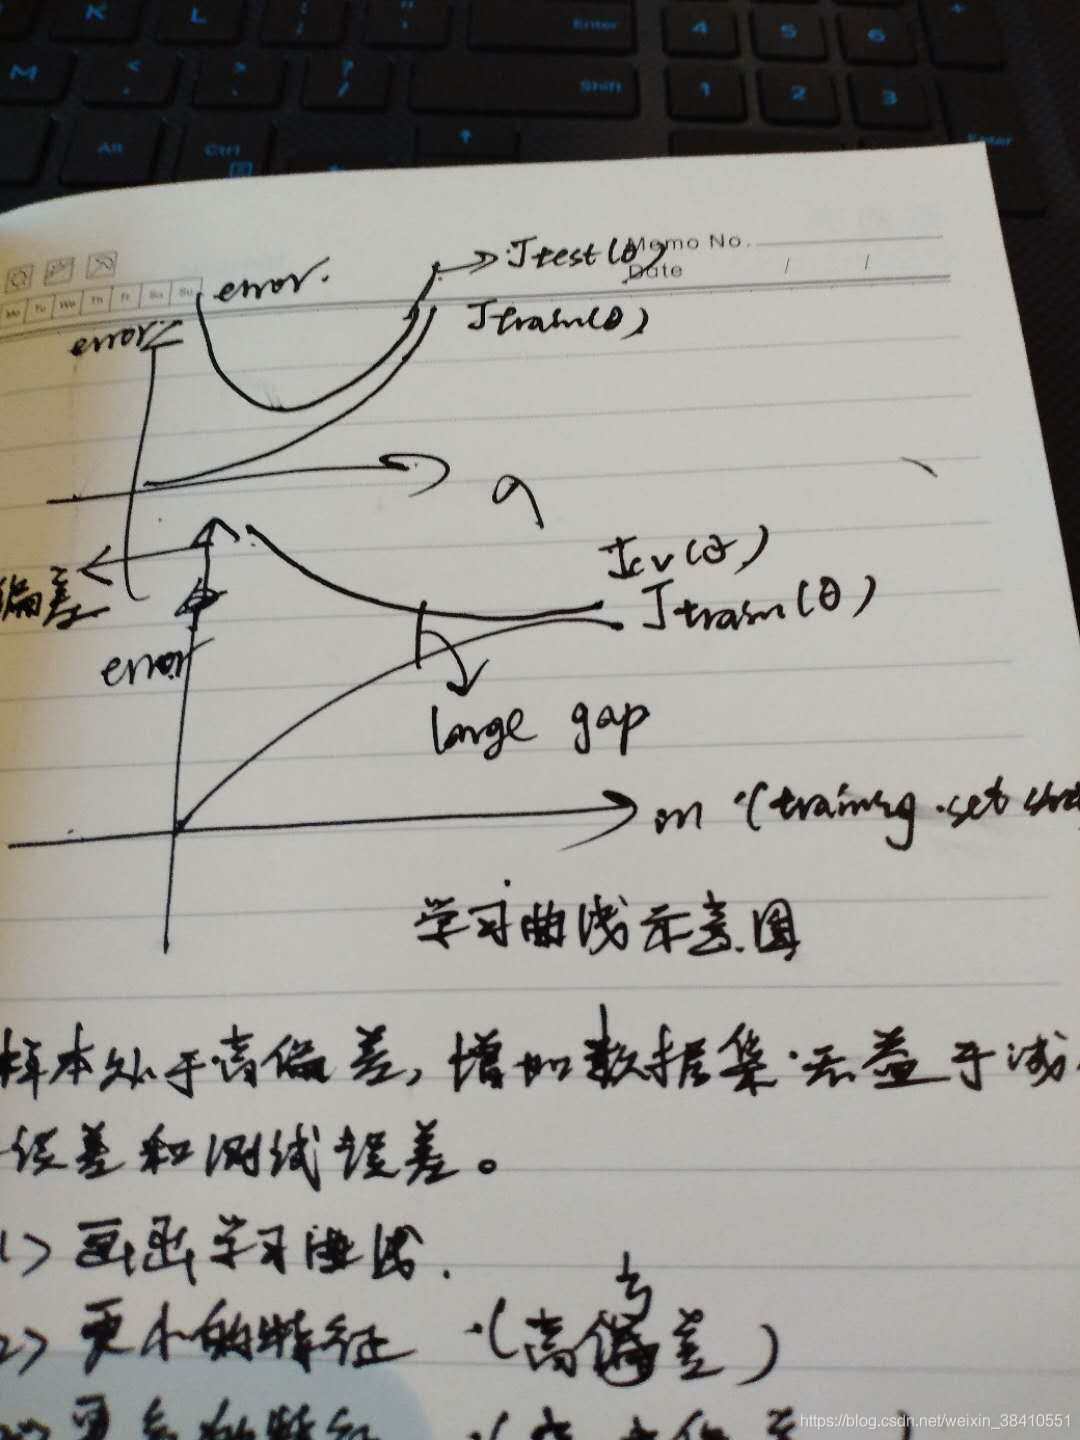 K L Enter 4 5 6
M < > ? / Shift 1 2 3
Alt Ctrl Enter
Memo No.
Date / /
Mo Tu We Th Fr Sa Su
error.
Jtest(θ)
error
Jtrain(θ)
偏差
error
Jcv(θ)
Jtrain(θ)
large gap
m (training set
学习曲线示意图
样本处于高偏差,增加数据集无益于减
误差和测试误差。
1) 画出学习曲线.
2) 更小的特征 (高偏差)
更多的特征
https://blog.csdn.net/weixin_38410551